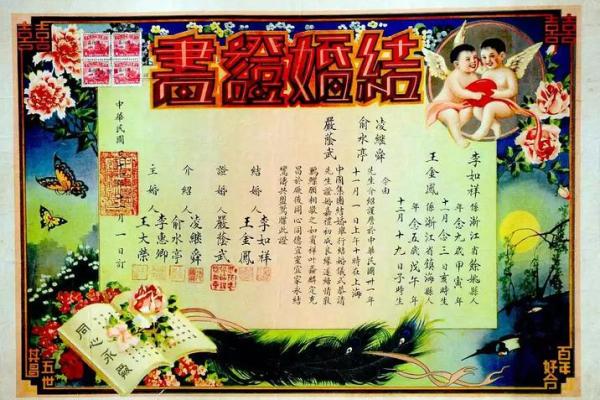 結婚證書
李如祥 係浙江省餘姚縣人
年念九歲甲寅年
十一月念三日亥時生
王金鳳 係浙江省鎮海縣人
年念五歲戊午年
十二月十九日子時生
今由
凌繼舜
俞水亭
先生介紹謹詹於中華民國卅一年
十一月一日上午十時在上海
中國集團結婚舉行結婚儀式恭請
嚴蔭武
先生證婚嘉禮初成良緣遂締情敦
鶼鰈願相敬之如賓祥叶螽麟定克
昌於厥後同心同德宜室宜家永結
鸞儔共盟鴛牒此證
結婚人 李如祥
王金鳳
證婚人 嚴蔭武
介紹人 凌繼舜
俞水亭
主婚人 李惠卿
王大榮
中華民國 月一日訂
同心永
百年好合
五世其昌